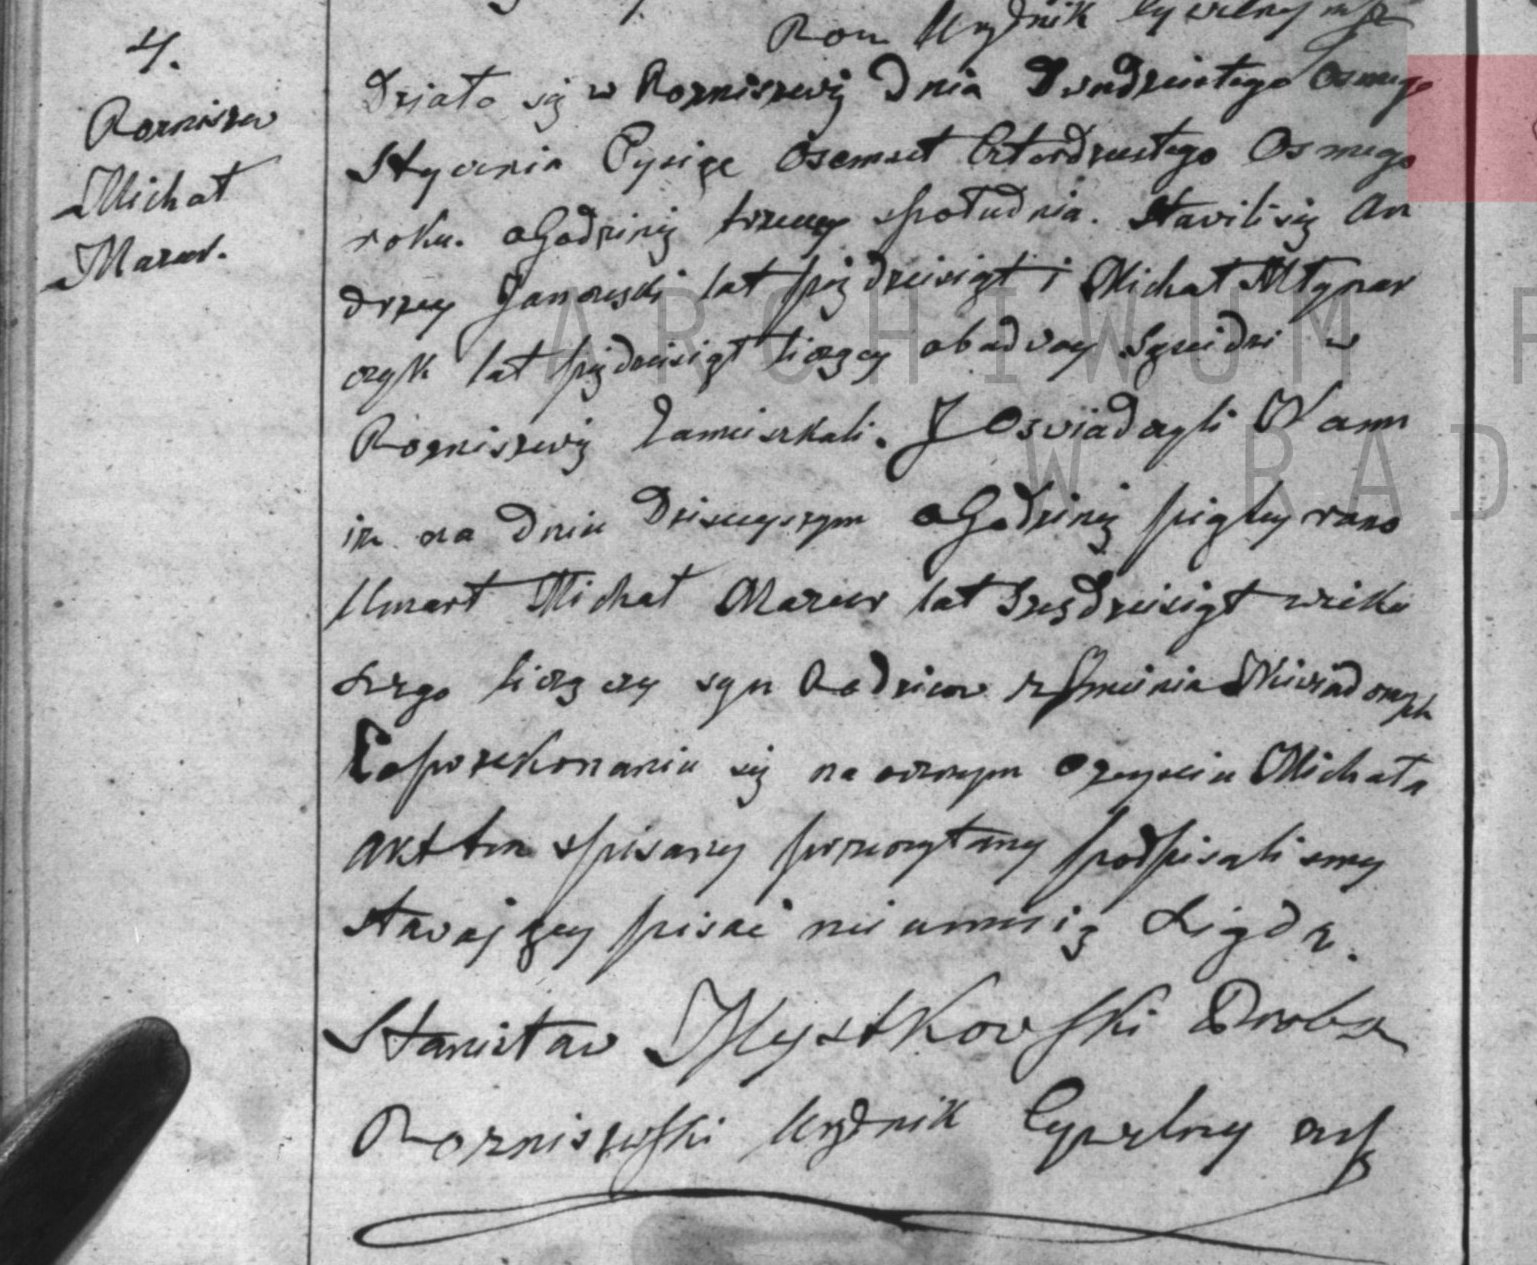 Roz Urzędnik Cywilny mp
4.
Rozniszew
Michał
Mazur.
Działo się w Rozniszewię Dnia Dwudziestego Osmego
Stycznia Tysiąc Osemset Czterdziestego Osmego
roku. o Godzinię trzeciey społudnia. Stawili się An
drzey Janowski lat piędziesiąt i Michał Młynar
czyk lat piędziesiąt liczący obadway Sąsiedzi w
Rozniszewię Zamieszkali. J Oswiadczyli Nam
iże na dniu Dzisieyszym o Godzinię piątey rano
Umarł Michał Mazur lat Szezdziesiąt wieku
swego liczący syn Rodzicow z Jmienia Niewiadomych
Po przekonaniu się naocznym o zeysciu Michała
Akt ten spisany przeczytany podpisali smy
stawający pisać nie umieią Xiądz.
Stanisław Mystkowski Probsz
Rozniszewski Urzędnik Cywilny mp
ARCHIWUM P
W RAD